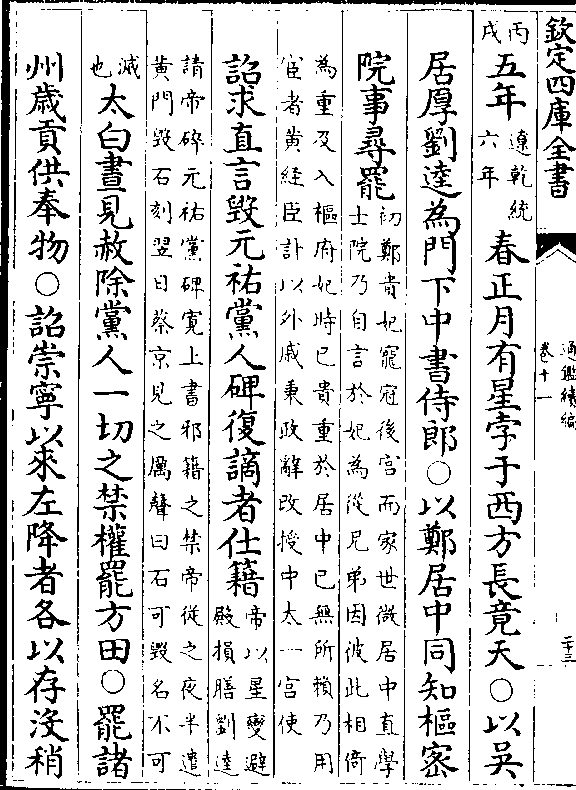 欽定四庫全書
通鑑續編
卷十一
二十三
丙戌五年遼乾統六年春正月有星孛于西方長竟天○以吳
居厚劉逵為門下中書侍郎○以鄭居中同知樞密
院事尋罷初鄭貴妃寵冠後宮而家世微居中直學
士院乃自言於妃為從兄弟因彼此相倚
為重及入樞府妃時已貴重於居中已無所賴乃用
宦者黄經臣計以外戚秉政辭改授中太一宮使
詔求直言毀元祐黨人碑復謫者仕籍帝以星變避
殿損膳劉逵
請帝碎元祐黨碑寛上書邪籍之禁帝從之夜半遣
黄門毀石刻翌日蔡京見之厲聲曰石可毀名不可
滅也太白晝見赦除黨人一切之禁權罷方田○罷諸
州歳貢供奉物○詔崇寧以來左降者各以存沒稍